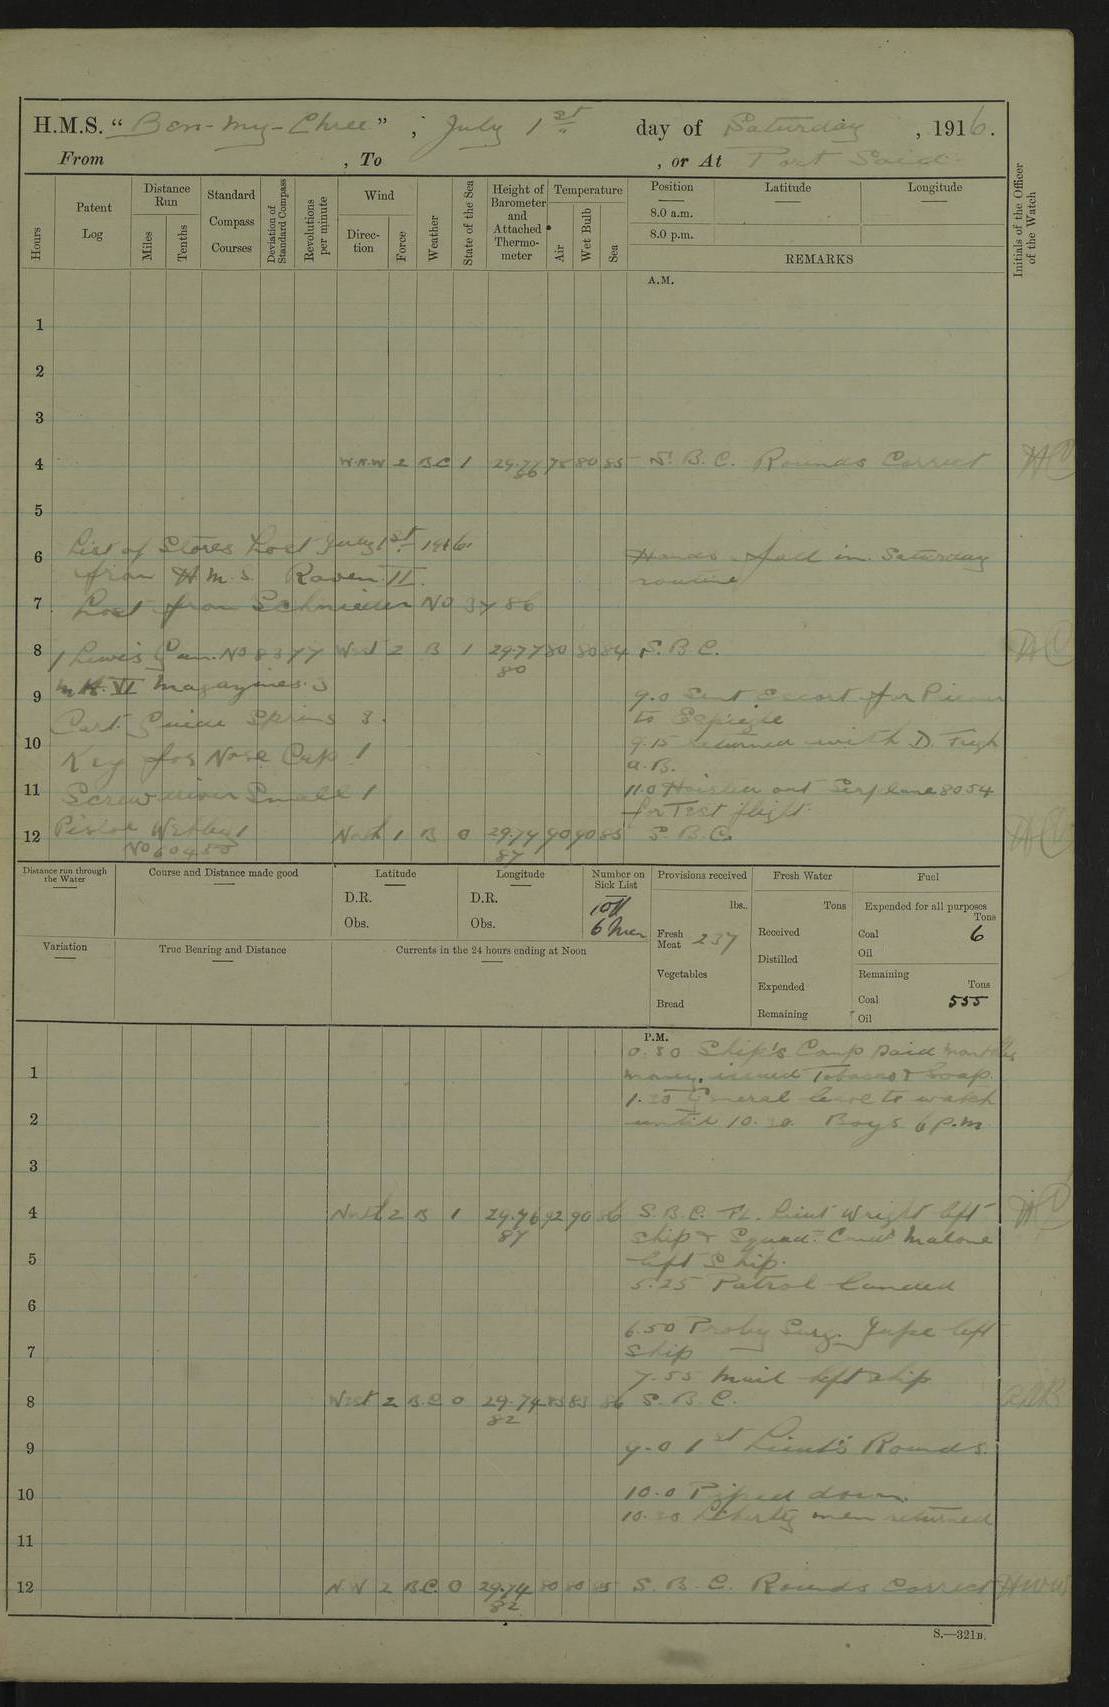 H.M.S. "Ben-my-Chree", July 1st day of Saturday, 1916.
From , To , or At Port Said
Hours
Patent Log
Distance Run
Miles
Tenths
Standard Compass Courses
Deviation of Standard Compass
Revolutions per minute
Wind
Direction
Force
Weather
State of the Sea
Height of Barometer and Attached Thermometer
Temperature
Air
Wet Bulb
Sea
Position
Latitude
Longitude
8.0 a.m.
8.0 p.m.
REMARKS
Initials of the Officer of the Watch
A.M.
1
2
3
4 W.N.W 2 BC 1 29.77 78 80 85 S. B. C. Rounds Correct
86
5
List of Stores Lost July 1st 1916.
6 Hands fall in. Saturday
from H.M.S. Raven II. routine
7 Lost from Schnieder No 3786
8 1 Lewis Gun. No 8377 West 2 B 1 29.77 80 80 84 S. B. C.
80
Mk. VI Magazines. 3
9 9.0 Sent Escort for
Cart. Guide Spring 3. to Espiegle
10 9.15 returned with D.
Key for Nose Cap 1 A.B.
11 Screwdriver Small 1 11.0 Hoisted out 8054
for Test flight.
12 Pistol Webley 1 North 1 B 0 29.79 90 90 85 S. B. C.
No 60450 87
Distance run through the Water
Course and Distance made good
Latitude
D.R.
Obs.
Longitude
D.R.
Obs.
Number on Sick List
1 Off
6 Men
Provisions received
lbs.
Fresh Meat 237
Vegetables
Bread
Fresh Water
Tons
Received
Distilled
Expended
Remaining
Fuel
Expended for all purposes
Tons
Coal 6
Oil
Remaining
Tons
Coal 555
Oil
Variation
True Bearing and Distance
Currents in the 24 hours ending at Noon
P.M.
0.30 Ship's Comp paid monthly
1 money, issued Tobacco & Soap.
1.30 General leave to watch
2 until 10.30. Boys 6 p.m
3
4 North 2 B 1 29.76 92 90 86 S. B. C. Fl. Lieut Wright left
87 ship & Squad. Comd Malone
5 left Ship.
5.25 Patrol landed
6
6.50 Proby Surg. left
7 Ship
7.55 Mail left ship
8 West 2 B.C 0 29.74 83 83 86 S. B. C.
82
9 9.0 1st Lieut's Rounds.
10 10.0 Piped down.
10.30 Liberty men returned
11
12 N.W 2 B.C. 0 29.74 80 80 85 S. B. C. Rounds Correct
82
S.—321B.